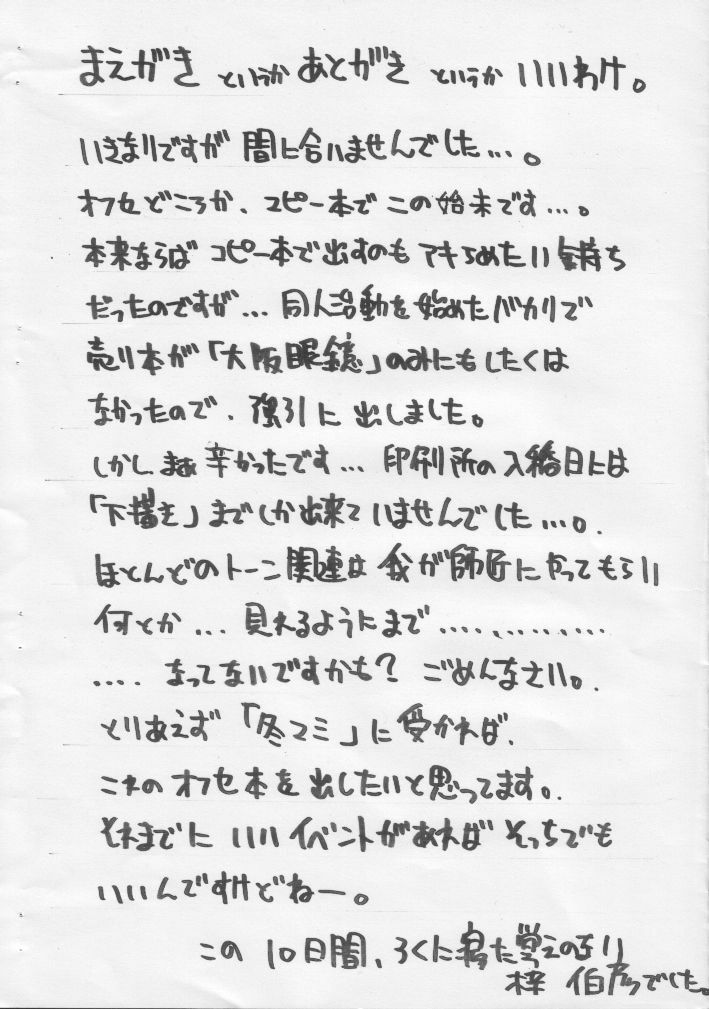 まえがき というか あとがき というか いいわけ。
いきなりですが 間に合いませんでした…。
オフセどころか、コピー本で この始末です…。
本来ならば コピー本で出すのも アキらめたい 気持ち
だったのですが… 同人活動を始めたバカリで
売り本が「大阪眼鏡」のみにもしたくは
なかったので、強引に 出しました。
しかし、まぁ 辛かったです… 印刷所の入稿日には
「下描き」までしか出来ていませんでした…。
ほとんどのトーン関連は 我が師匠にやってもらい
何とか… 見れるようにまで……………
…. なってないですかも? ごめんなさい。
とりあえず 「冬コミ」に 受かれば、
これの オフセ本を 出したいと思ってます。
それまでに いい イベントがあれば そっちでも
いいんですけどねー。
この 10日間、ろくに寝た覚えのない
梓 伯 でした。